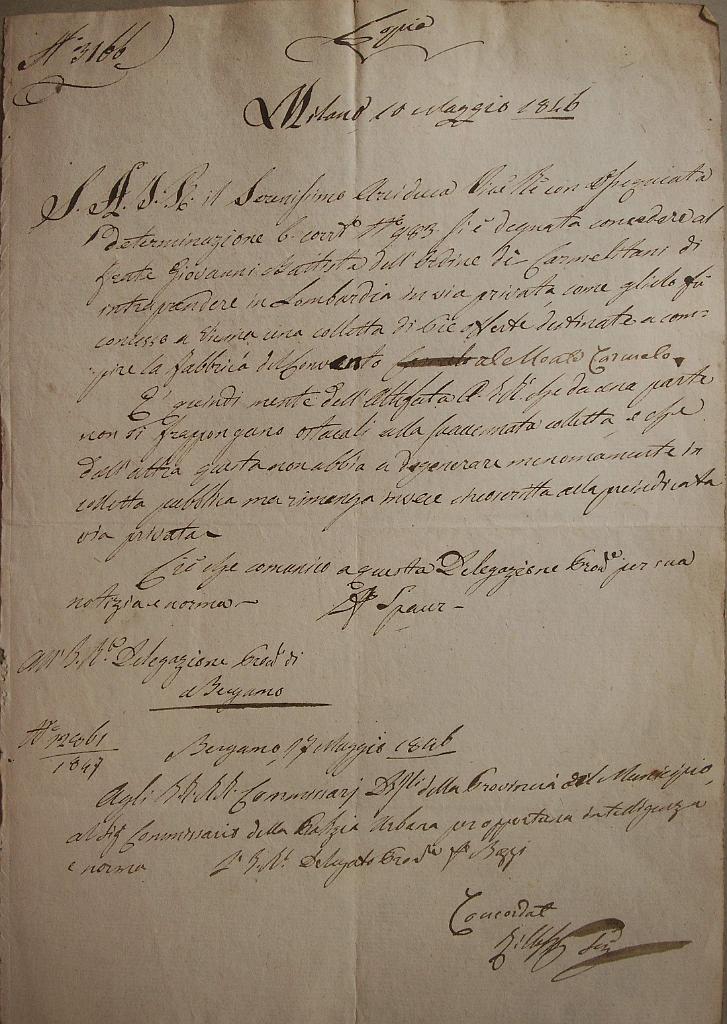 N.° 3166
Copia
Milano 10 Maggio 1846
S. A. I. R. il Serenissimo Arciduca Vice Re con ossequiata
determinazione 6 corr.te N.° 983 si è degnata concedere al
frate Giovanni Battista dell'Ordine de Carmelitani di
intraprendere in Lombardia in via privata, come glielo fù
concesso a Vienna una colletta di pie offerte destinate a com-
pire la fabbrica del Convento al Monte Carmelo.
E' quindi mente dell'Altefata A. S. che da una parte
non si frappongano ostacoli alla suaccennata colletta, e che
dall'altra questa non abbia a degenerare menomamente in
colletta pubblica ma rimanga invece circoscritta alla preindicata
via privata.
Ciò che comunico a questa Delegazione Prov.le per sua
notizia e norma. Spaur
All' I. R. Delegazione Prov.le di
Bergamo
N.°
Bergamo, 17 Maggio 1846
Agli I.I. R.R. Commissarj Dist.li della Provincia al Municipio,
al Sig Commissario della Polizia Urbana per opportuna intelligenza
e norma L' I. R. Delegato Prov.le
Concordat